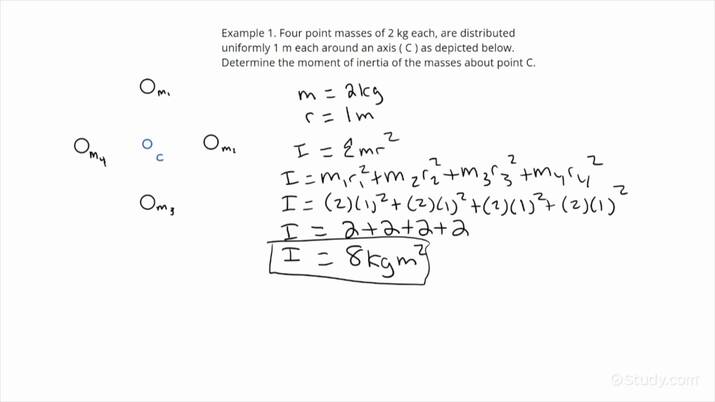 Example 1. Four point masses of 2 kg each, are distributed
uniformly 1 m each around an axis ( C ) as depicted below.
Determine the moment of inertia of the masses about point C.
m₁
m₄
c
m₁
m₃
m = 2kg
r = 1m
I = Σmr²
I = m₁r₁² + m₂r₂² + m₃r₃² + m₄r₄²
I = (2)(1)² + (2)(1)² + (2)(1)² + (2)(1)²
I = 2+2+2+2
I = 8kgm²
©Study.com